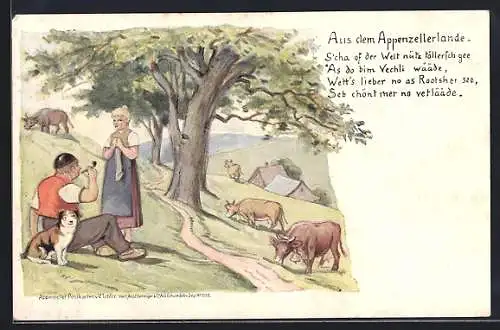 Aus dem Appenzellerlande.
S'cha of der Welt nütz töllersch gee
As do bim Vechli wääde,
Wett's lieber no as Rootsher see,
Seb chönt mer no vetlääde.
Appenzeller Postkarten